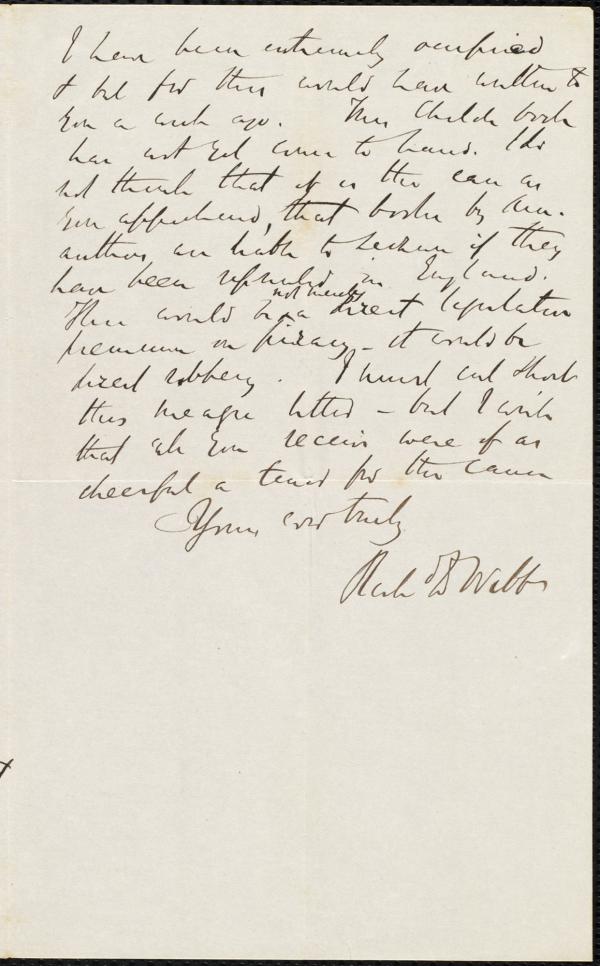 I have been extremely occupied
& but for this would have written to
you a week ago. Mrs Childs book
has not yet come to hand. I do
not think that it is the case as
you apprehend, that books by Am.
authors are liable to seizure if they
have been reprinted in England.
This would be not merely a direct legislative
premium on piracy – it would be
direct robbery. I must cut short
this meagre letter – but I wish
that all you receive were of as
cheerful a tenor for the cause
Yours ever truly
Richd D Webb